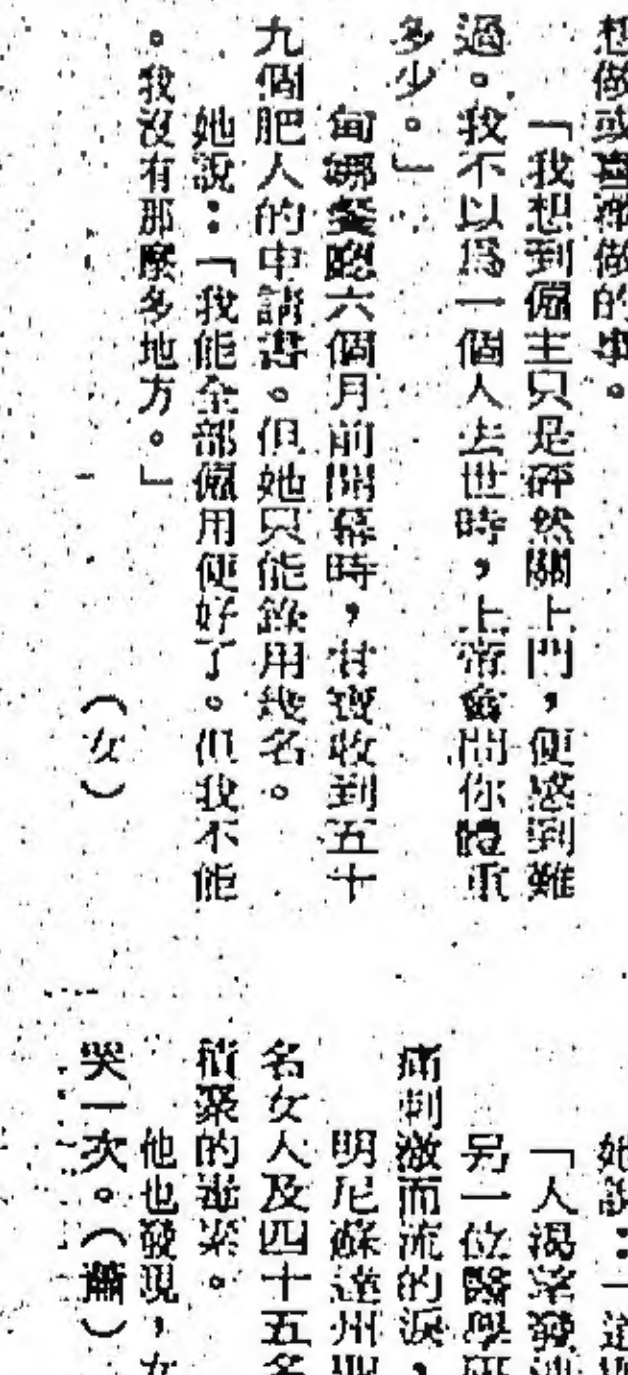 想做或喜滋做的事。
「我想到僱主只是砰然關上門,便感到難
過。我不以爲一個人去世時,上帝會問你體重
多少。」
甸娜餐廳六個月前開幕時,甘寶收到五十
九個肥人的申請書。但她只能錄用幾名。
她說:「我能全部僱用便好了。但我不能
。我沒有那麼多地方。」
(女)
她說:「這
「人渴
另一位醫學研
痛刺激而流的淚,
明尼蘇達州聖
名女人及四十五名
積聚的毒素。
他也發現,女
哭一次。(蕭)